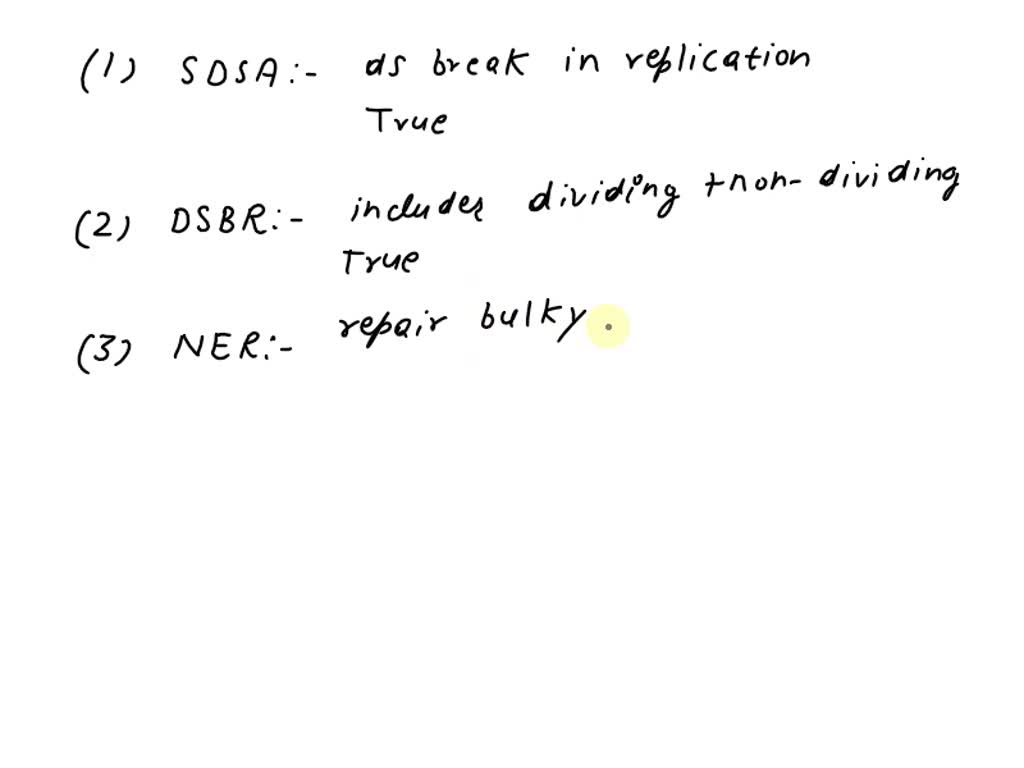 (1) SDSA:- ds break in replication
True
(2) DSBR:- includes dividing + non-dividing
True
(3) NER:- repair bulky